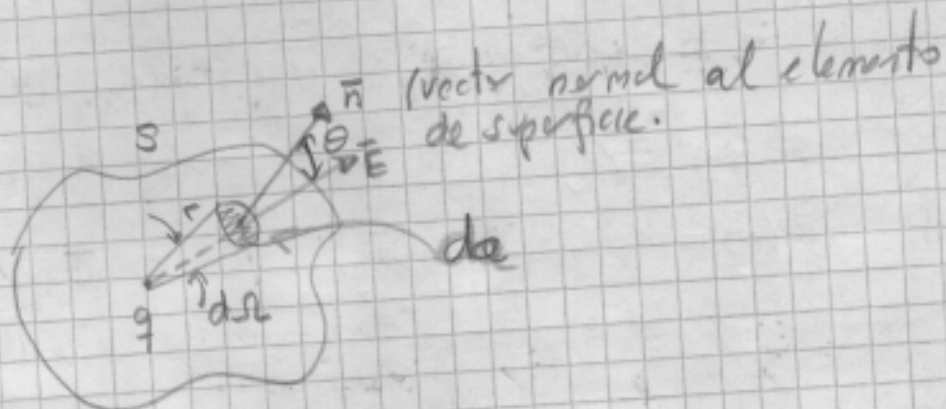 n̄ (vector normal al elemento
de superficie.
S
θ
Ē
r
da
q
dΩ